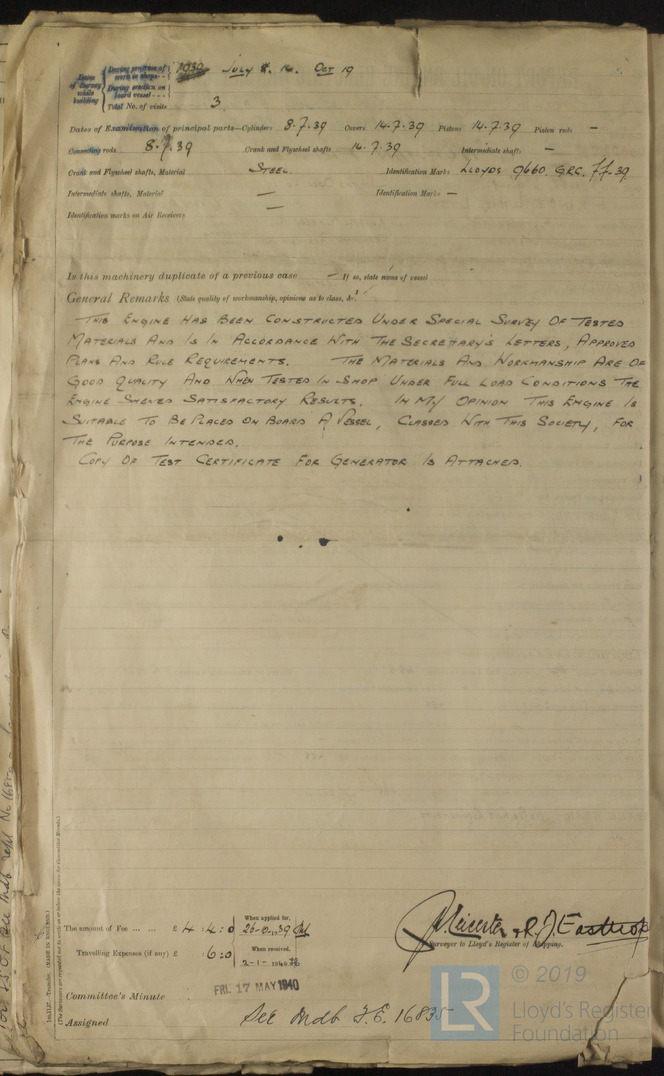 Dates of Survey while building
During progress of work in shops - - 1939 JULY 8. 14. OCT 19
During erection on board vessel - - -
Total No. of visits 3
Dates of Examination of principal parts—Cylinders 8.7.39 Covers 14.7.39 Pistons 14.7.39 Piston rods —
Connecting rods 8.7.39 Crank and Flywheel shafts 14.7.39 Intermediate shafts —
Crank and Flywheel shafts, Material STEEL. Identification Marks LLOYDS 9660. GRC.
Intermediate shafts, Material — Identification Marks —
Identification marks on Air Receivers —
Is this machinery duplicate of a previous case — If so, state name of vessel
General Remarks (State quality of workmanship, opinions as to class, &c.
THIS ENGINE HAS BEEN CONSTRUCTED UNDER SPECIAL SURVEY OF TESTED
MATERIALS AND IS IN ACCORDANCE WITH THE SECRETARY'S LETTERS, APPROVED
PLANS AND RULE REQUIREMENTS. THE MATERIALS AND WORKMANSHIP ARE OF
GOOD QUALITY AND WHEN TESTED IN SHOP UNDER FULL LOAD CONDITIONS THE
ENGINE SHEWED SATISFACTORY RESULTS. IN MY OPINION THIS ENGINE IS
SUITABLE TO BE PLACED ON BOARD A VESSEL, CLASSED WITH THIS SOCIETY, FOR
THE PURPOSE INTENDED.
COPY OF TEST CERTIFICATE FOR GENERATOR IS ATTACHED.
The amount of Fee ... ... £ 4 : 4 : 0 When applied for,
Travelling Expenses (if any) £ : 6 : 0 When received, 2-1-1940
Leicester & R. J. Easthope
Surveyor to Lloyd's Register of Shipping.
Committee's Minute FRI. 17 MAY 1940
Assigned See Mdb F.E. 16835
(MADE IN ENGLAND.)
© 2019
LR
Lloyd's Register
Foundation